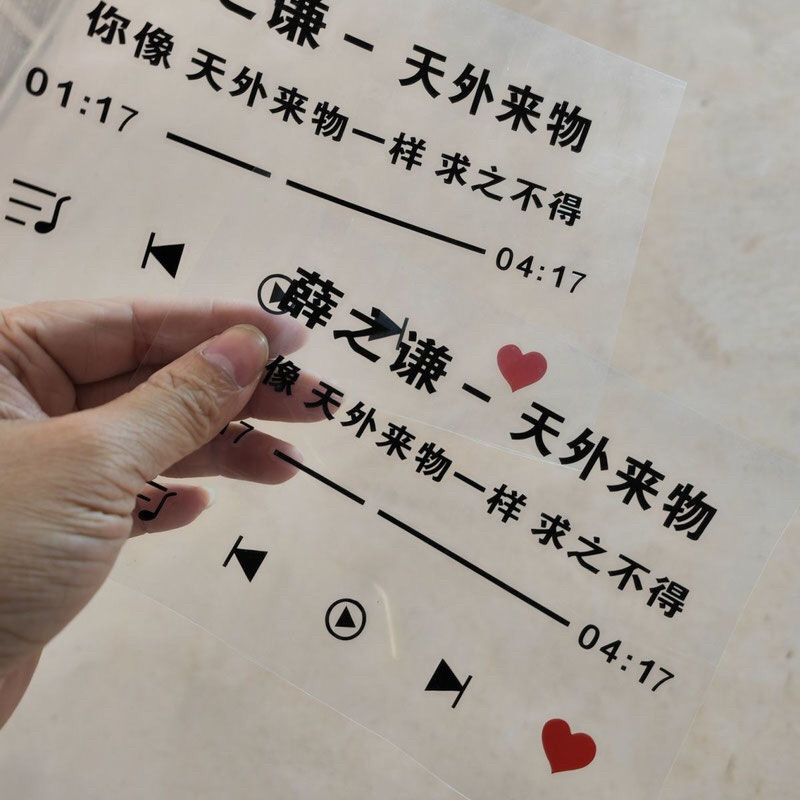 之谦 - 天外来物
你像 天外来物一样 求之不得
01:17
04:17
薛之谦 - 天外来物
像 天外来物一样 求之不得
17
04:17